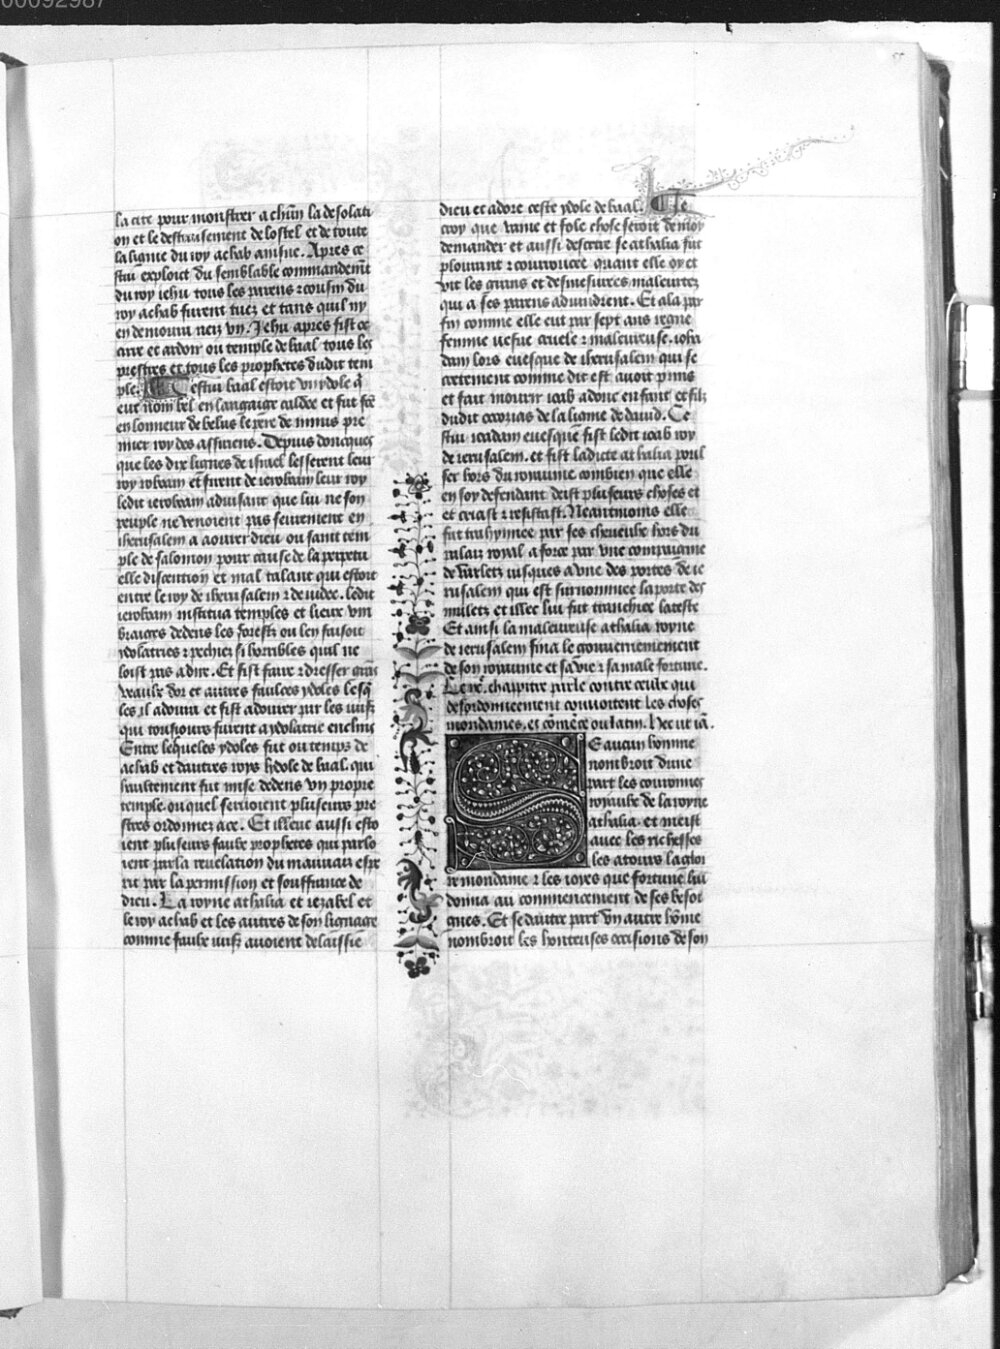 00092987
la cite pour monstrer a chũn la desolati
on et le destruisement de lostel et de toute
la lignie du roy achab anisne. Apres ce
stui exploict du semblable commandemẽt
du roy iehu tous les parens ⁊ cousins du
roy achab furent tuez et tans quil ny
en demoura neiz vn. Jehu apres fist oc
cire et ardoir ou temple de baal tous les
prestres et tous les prophetes dudit tem
ple. Cestui baal estoit vn ydole q̃
eut nom bel en langaige caldee et fut fcẽ
en lonneur de belus le pere de ninus pre
mier roy des assiriens. Depuis doncques
que les dix lignes de israel lesserent leur
roy roboam et firent de ieroboam leur roy
ledit ieroboam aduisant que lui ne son
peuple ne venoient pas seurement en
iherusalem a aourer dieu ou saint tem
ple de salomon pour cause de la perpetu
elle discention et mal talant qui estoit
entre le roy de iherusalem ⁊ de iudee. ledit
ieroboam institua temples et lieux vm
braiges dedens les forestz ou len faisoit
ydolatries ⁊ pechiez si horribles quil ne
loist pas a dire. Et fist faire ⁊ dresser grãs
veaulx dor et autres faulces ydoles lesq̃
les il adoura et fist adourer par les iuifz
qui tousiours furent a ydolatrie enclins
Entre lesqueles ydoles fut ou temps de
achab et dautres roys lydole de baal. qui
haultement fut mise dedens vn propre
temple. ouquel seruoient pluseurs pre
stres ordonnez a ce. Et illeuc aussi esto
ient pluseurs faulx prophetes qui parlo
ient par la reuelation du mauuais espe
rit par la permission et souffrance de
dieu. La royne athalia et iezabel et
le roy achab et les autres de son lignage
comme faulx iuifz auoient delaissie
dieu et adore ceste ydole de baal. Je
croy que vaine et fole chose seroit de moy
demander et aussi descrire se athalia fut
plourant ⁊ courroucee quant elle oyt et
vit les grans et desmesurees maleurtez
qui a ses parens aduindrent. Et ala par
fin comme elle eut par sept ans regne
femme uefue cruele ⁊ maleureuse. ioha
dam lors euesque de iherusalem qui se
cretement comme dit est auoit prins
et fait nourrir ioab adonc enfant et filz
dudit ocozias de la ligne de dauid. Ce
stui ioadam euesque fist ledit ioab roy
de ierusalem. et fist ladicte athalia poul
ser hors du royaume combien que elle
en soy defendant deist plusieurs choses et
et criast ⁊ resistast. Neantmoins elle
fut trahynnee par ses cheueulx hors du
palais royal a force par vne compaignie
de varletz iusques a vne des portes de ie
rusalem qui est surnommee la porte des
muletz et illec lui fut tranchiee la teste
Et ainsi la maleureuse athalia royne
de ierusalem fina le gouuernement
de son royaume et sa vie ⁊ sa male fortune.
chappitre parle contre ceulx qui
desordonneement couuoitent les choses
mondaines. et cõmẽce ou latin.
Se aucun homme
nombroit dune
part les couronnes
royaulx de la royne
athalia. et meist
auec les richesses
les atours la gloi
re mondaine ⁊ les ioyes que fortune lui
donna au commencement de ses besoi
gnes. Et se dautre part vn autre hõme
nombroit les honteuses occisions de son